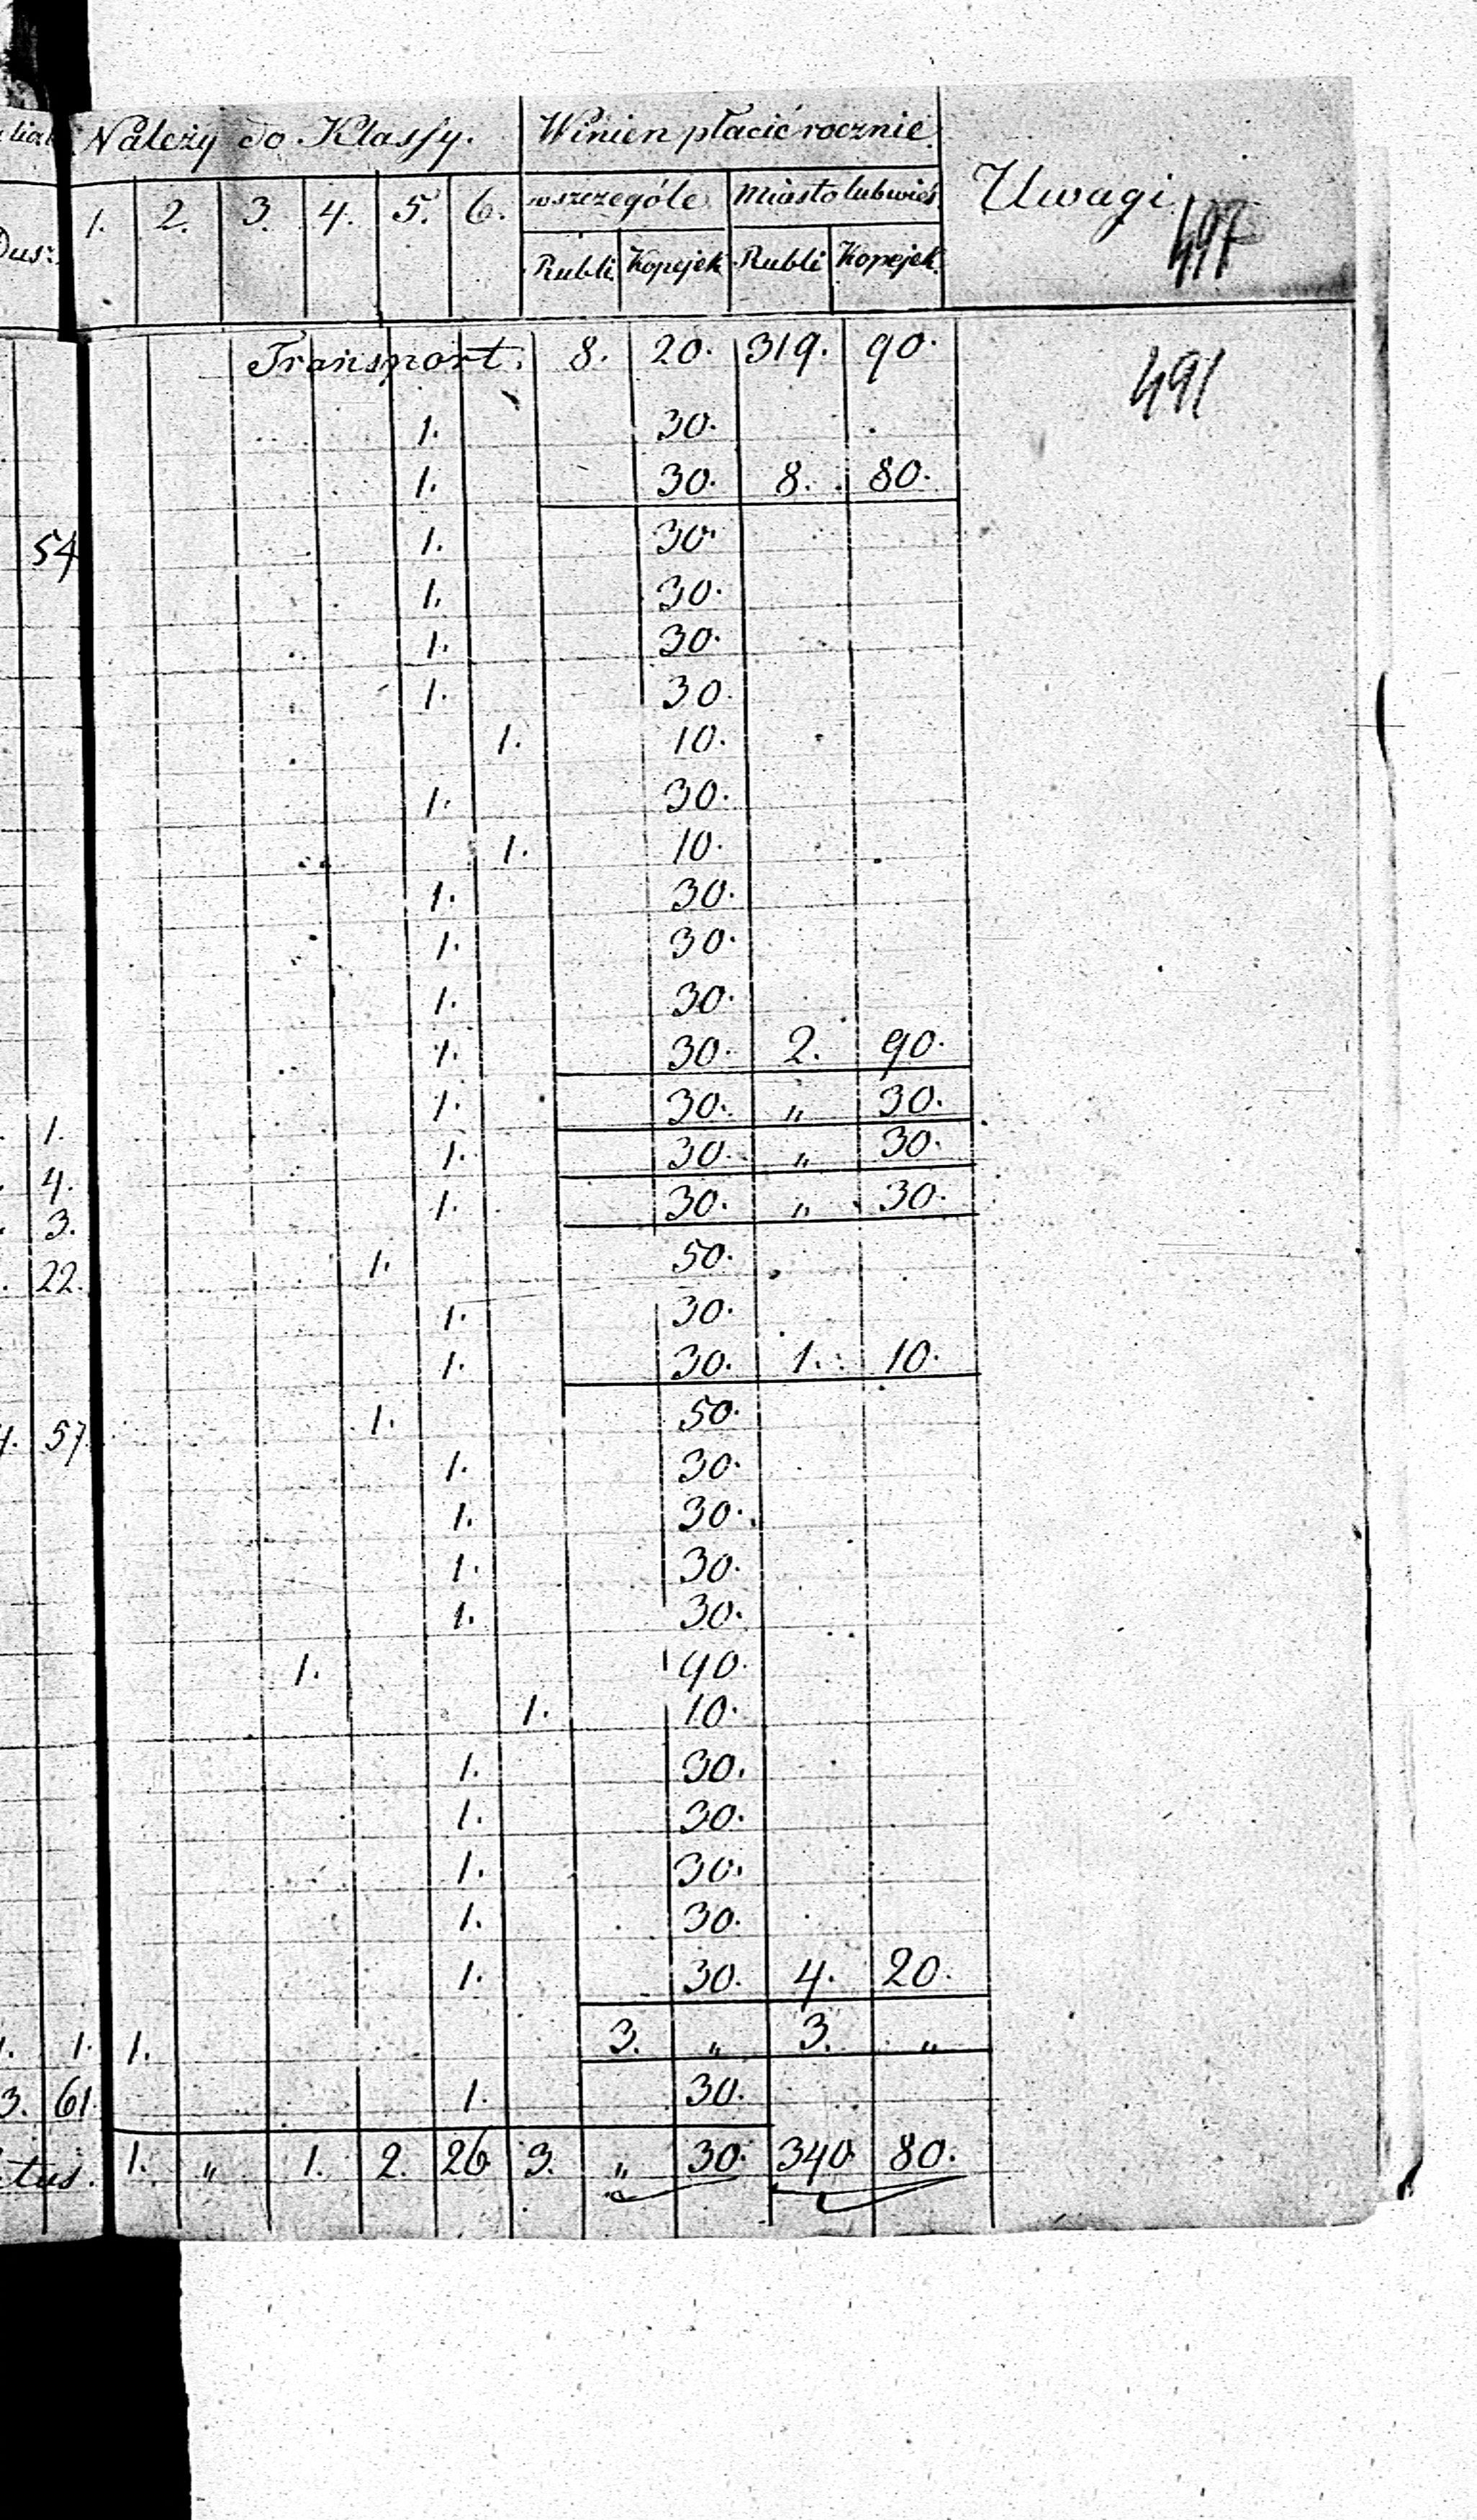 Należy do Klassy. Winien płacić rocznie. Uwagi
1. 2. 3. 4. 5. 6. w szczególe Miasto lub wieś
Dus: Rubli Kopejek Rubli Kopejek 497
Transport. 8. 20. 319. 90. 491
1. 30.
1. 30. 8. 80.
54 1. 30.
1. 30.
1. 30.
1. 30.
1. 10.
1. 30.
1. 10.
1. 30.
1. 30.
1. 30.
1. 30. 2. 90.
1. 1. 30. „ 30.
4. 1. 30. „ 30.
3. 1. 30. „ 30.
22. 1. 50.
1. 30.
1. 30. 1. 10.
57. 1. 50.
1. 30.
1. 30.
1. 30.
1. 30.
1. 90.
1. 10.
1. 30.
1. 30.
1. 30.
1. 30.
1. 30. 4. 20.
1. 1. 1. 3. „ 3. „
3. 61. 1. 30.
tus. 1. „ 1. 2. 26 3. „ 30. 340. 80.